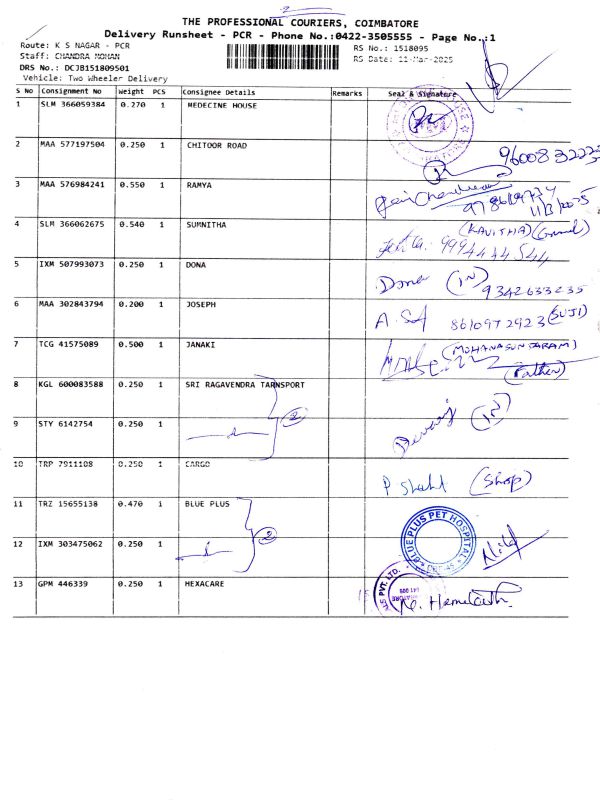 THE PROFESSIONAL COURIERS, COIMBATORE
Delivery Runsheet - PCR - Phone No.:0422-3505555 - Page No.:1
Route: K S NAGAR - PCR
RS No.: 1518095
Staff: CHANDRA MOHAN
RS Date: 11-Mar-2025
DRS No.: DCJB151809501
Vehicle: Two Wheeler Delivery
S No Consignment No Weight PCS Consignee Details Remarks Seal & Signature
1 SLM 366059384 0.270 1 MEDECINE HOUSE
2 MAA 577197504 0.250 1 CHITOOR ROAD
3 MAA 576984241 0.550 1 RAMYA
11/3/2025
4 SLM 366062675 0.540 1 SUMNITHA (KAVITHA)
9994444544
5 IXM 507993073 0.250 1 DONA Dona (IN)
9342633235
6 MAA 302843794 0.200 1 JOSEPH (SUJI)
8610972923
7 TCG 41575089 0.500 1 JANAKI (MOHANASUNTARAM)
(Father)
8 KGL 600083588 0.250 1 SRI RAGAVENDRA TARNSPORT
2
9 STY 6142754 0.250 1 Devaraj (IN)
10 TRP 7911108 0.250 1 CARGO (Shop)
11 TRZ 15655138 0.470 1 BLUE PLUS
BLUE PLUS PET HOSPITAL
2
12 IXM 303475062 0.250 1
13 GPM 446339 0.250 1 HEXACARE
PVT. LTD.